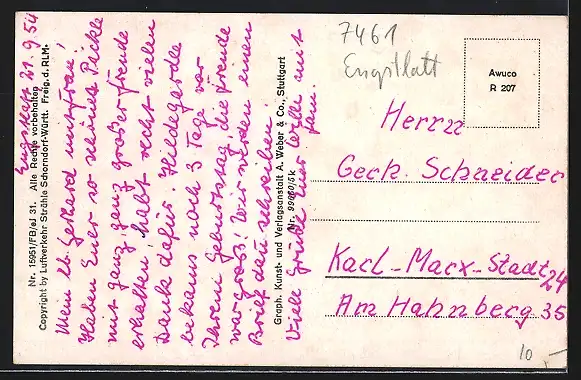 Nr. 15951/FB/eJ 31. Alle Rechte vorbehalten
Copyright by Luftverkehr Strähle Schorndorf-Württ. Freig. d. RLM.
Engstlatt 21.9.54
Mein lb. Gerhard mit Frau!
Haben Euer so schönes Päckle
mit ganz, ganz großer Freude
erhalten, habt recht vielen
Dank dafür. Hildegardle
bekams nach 3 Tage vor
Ihrem Geburtstag, die Freude
war groß! Wir werden einen
Brief dan schreiben.
Viele Grüße Euer Wilh. mit
Fam.
Graph. Kunst- und Verlagsanstalt A. Weber & Co., Stuttgart
Nr. 99660/5k
7461
Engstlatt
Awuco
R 207
Herrn
Gerh. Schneider
Karl-Marx-Stadt 24
Am Hahnberg 35
10 –